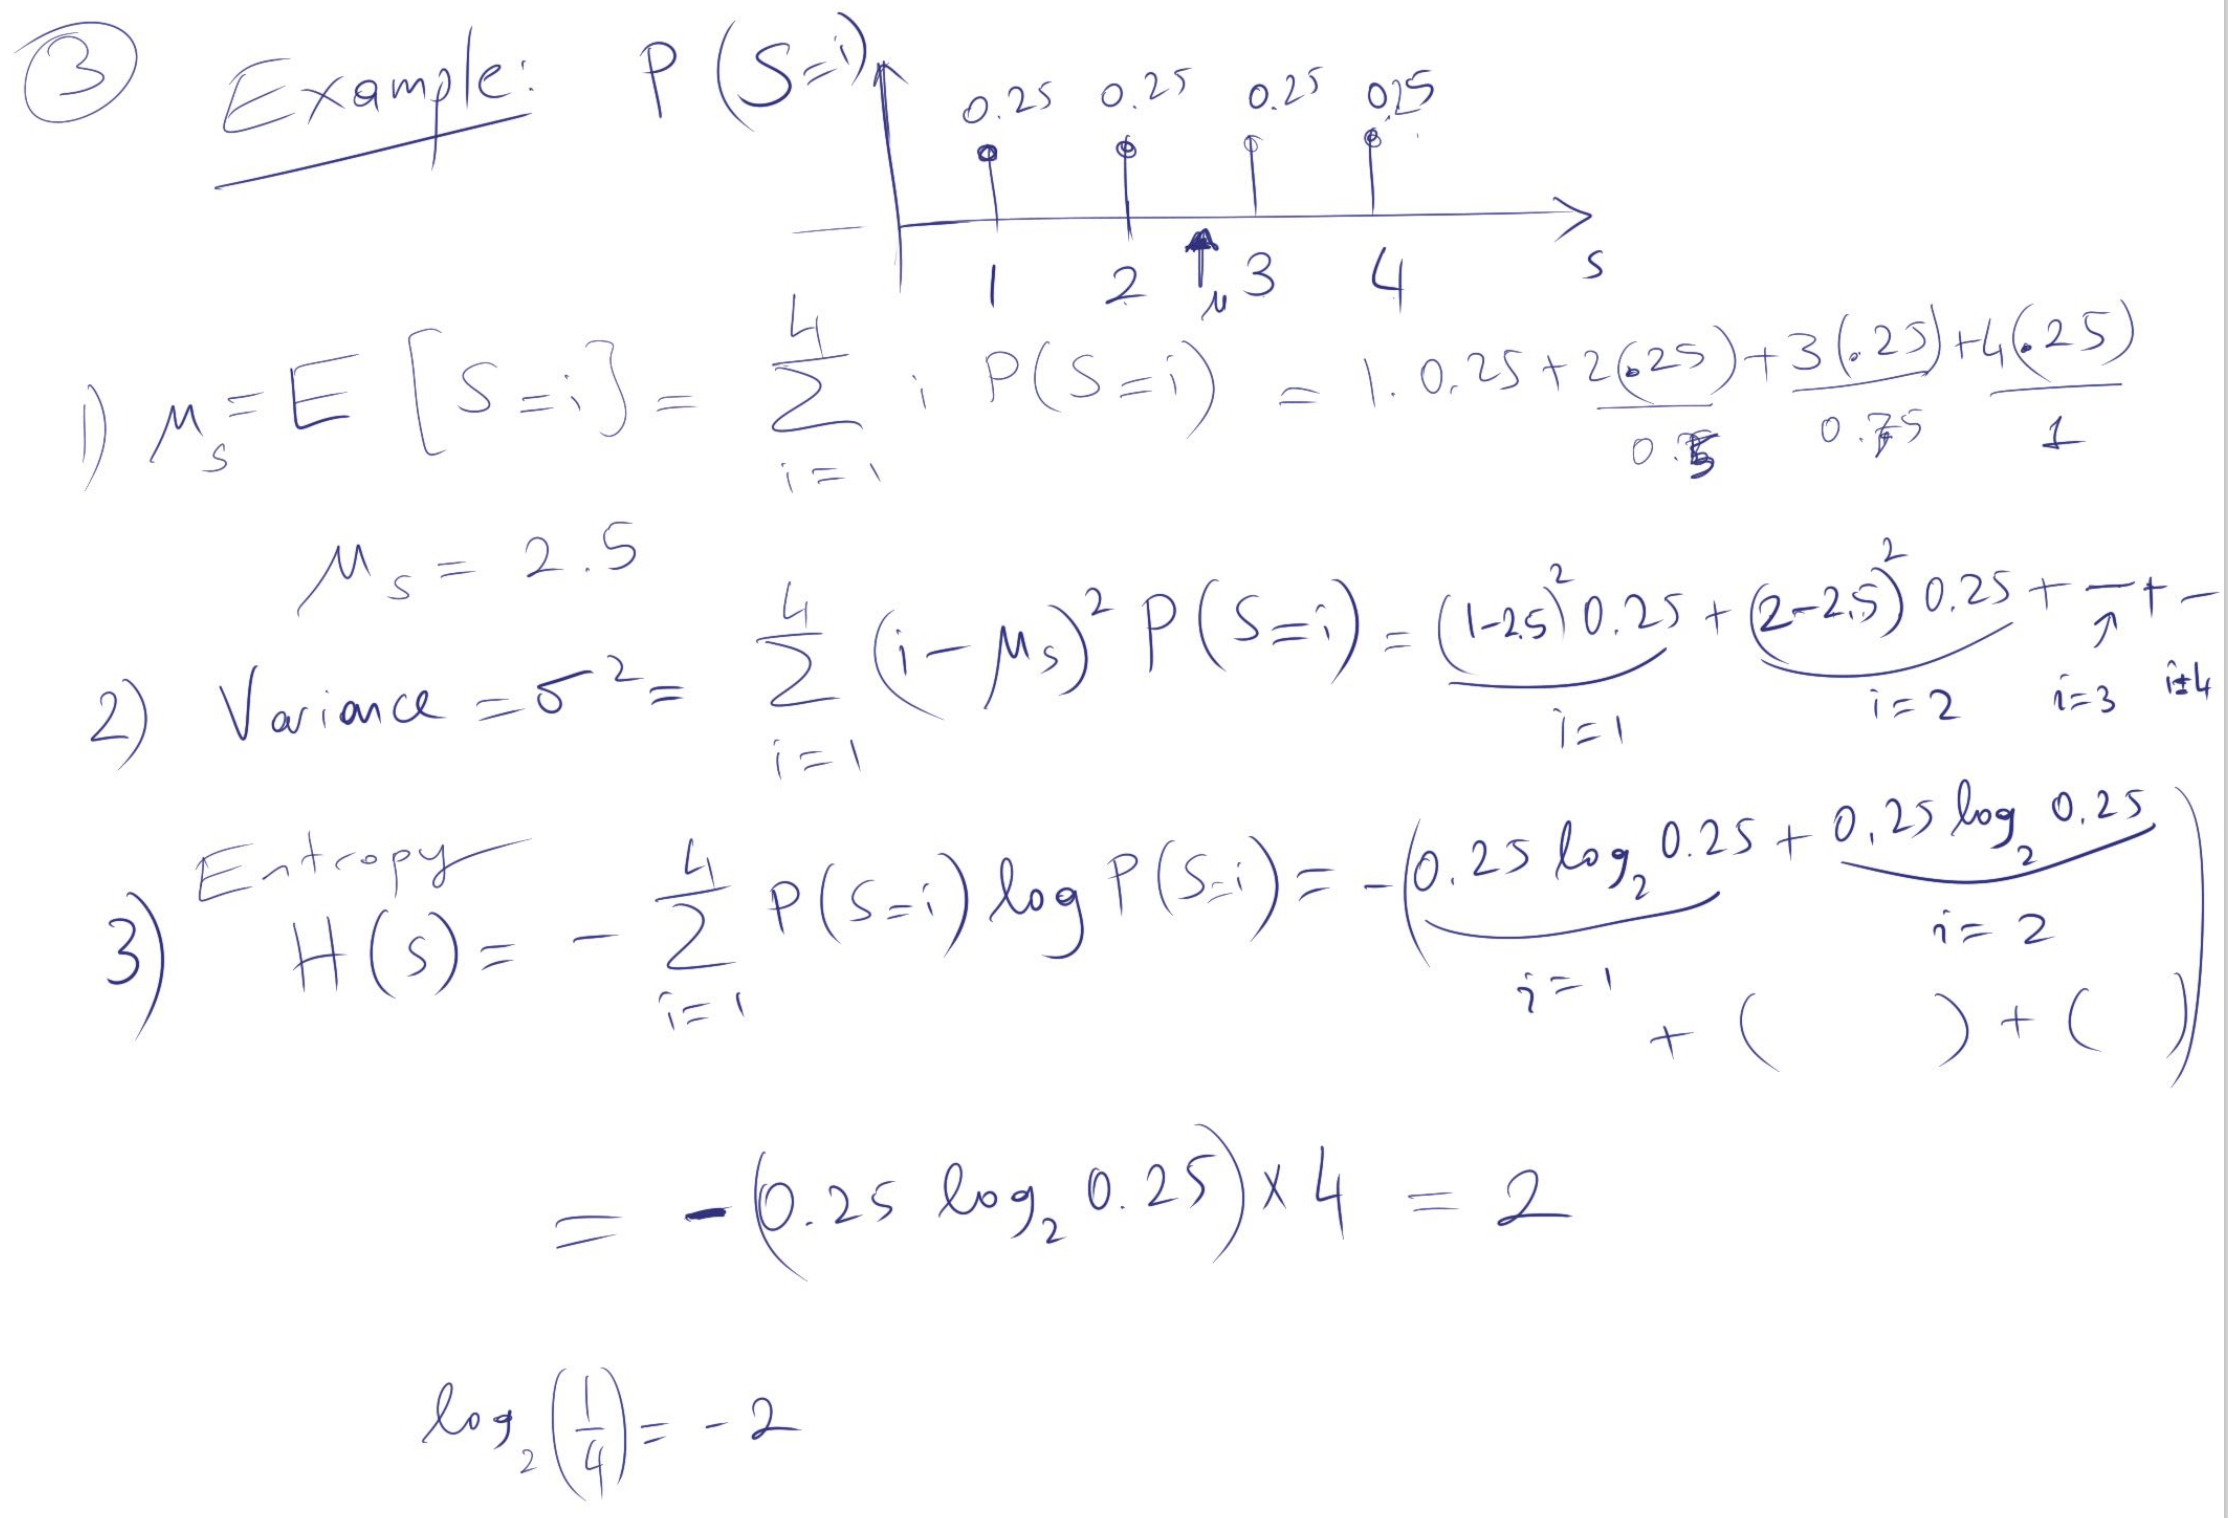 ③ Example: P(S=i)
0.25 0.25 0.25 0.25
1 2 μ 3 4 s
1) μ_s = E[S=i] = Σ_{i=1}^{4} i P(S=i) = 1.0.25 + 2(.25) + 3(.25) + 4(.25)
0.5 0.75 1
μ_s = 2.5
2) Variance = σ² = Σ_{i=1}^{4} (i-μ_s)² P(S=i) = (1-2.5)² 0.25 + (2-2.5)² 0.25 + — + —
i=1 i=2 i=3 i=4
Entropy
3) H(s) = - Σ_{i=1}^{4} P(S=i) log P(S=i) = -(0.25 log₂ 0.25 + 0.25 log₂ 0.25
i=1 i=2
+ ( ) + ( ))
= -(0.25 log₂ 0.25) x 4 = 2
log₂(1/4) = -2